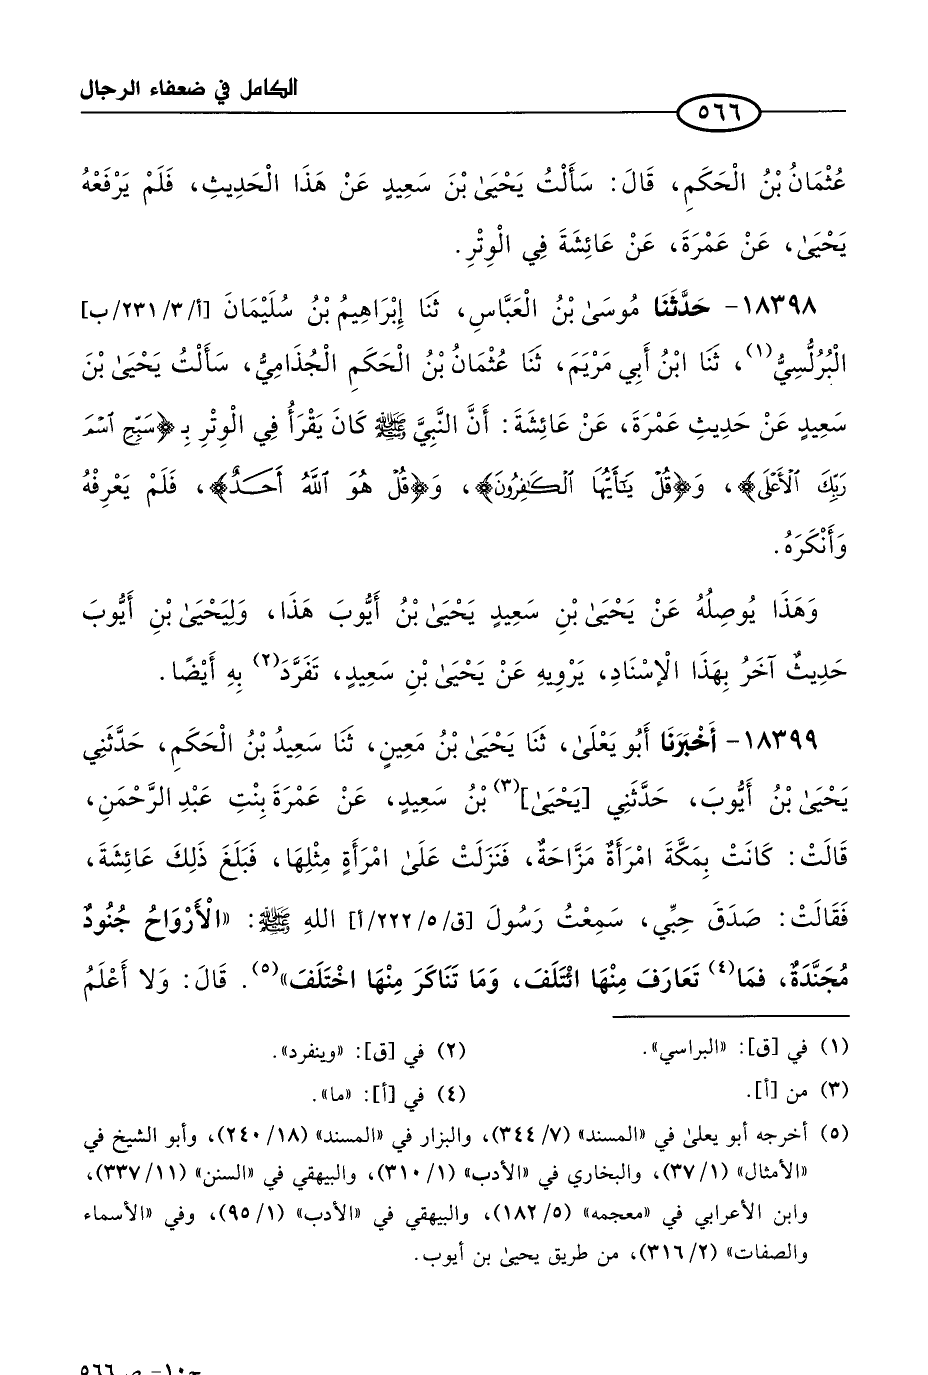 الكامل في ضعفاء الرجال
٥٦٦
عُثْمَانُ بْنُ الْحَكَمِ، قَالَ: سَأَلْتُ يَحْيَىٰ بْنَ سَعِيدٍ عَنْ هَذَا الْحَدِيثِ، فَلَمْ يَرْفَعْهُ
يَحْيَىٰ، عَنْ عَمْرَةَ، عَنْ عَائِشَةَ فِي الْوِتْرِ.
١٨٣٩٨- حَدَّثَنَا مُوسَىٰ بْنُ الْعَبَّاسِ، ثَنَا إِبْرَاهِيمُ بْنُ سُلَيْمَانَ [أ/٢٣١/٣/ب]
الْبُرُلُّسِيُّ(١)، ثَنَا ابْنُ أَبِي مَرْيَمَ، ثَنَا عُثْمَانُ بْنُ الْحَكَمِ الْجُذَامِيُّ، سَأَلْتُ يَحْيَىٰ بْنَ
سَعِيدٍ عَنْ حَدِيثِ عَمْرَةَ، عَنْ عَائِشَةَ: أَنَّ النَّبِيَّ ﷺ كَانَ يَقْرَأُ فِي الْوِتْرِ بِـ ﴿سَبِّحِ ٱسْمَ
رَبِّكَ ٱلْأَعْلَى﴾، وَ﴿قُلْ يَٰٓأَيُّهَا ٱلْكَٰفِرُونَ﴾، وَ﴿قُلْ هُوَ ٱللَّهُ أَحَدٌ﴾، فَلَمْ يَعْرِفْهُ
وَأَنْكَرَهُ.
وَهَذَا يُوصِلُهُ عَنْ يَحْيَىٰ بْنِ سَعِيدٍ يَحْيَىٰ بْنُ أَيُّوبَ هَذَا، وَلِيَحْيَىٰ بْنِ أَيُّوبَ
حَدِيثٌ آخَرُ بِهَذَا الْإِسْنَادِ، يَرْوِيهِ عَنْ يَحْيَىٰ بْنِ سَعِيدٍ، تَفَرَّدَ(٢) بِهِ أَيْضًا.
١٨٣٩٩- أَخْبَرَنَا أَبُو يَعْلَىٰ، ثَنَا يَحْيَىٰ بْنُ مَعِينٍ، ثَنَا سَعِيدُ بْنُ الْحَكَمِ، حَدَّثَنِي
يَحْيَىٰ بْنُ أَيُّوبَ، حَدَّثَنِي [يَحْيَىٰ](٣) بْنُ سَعِيدٍ، عَنْ عَمْرَةَ بِنْتِ عَبْدِ الرَّحْمَنِ،
قَالَتْ: كَانَتْ بِمَكَّةَ امْرَأَةٌ مَزَّاحَةٌ، فَنَزَلَتْ عَلَىٰ امْرَأَةٍ مِثْلِهَا، فَبَلَغَ ذَلِكَ عَائِشَةَ،
فَقَالَتْ: صَدَقَ حِبِّي، سَمِعْتُ رَسُولَ [ق/٢٢٢/٥/أ] اللهِ ﷺ: «الْأَرْوَاحُ جُنُودٌ
مُجَنَّدَةٌ، فمَا(٤) تَعَارَفَ مِنْهَا ائْتَلَفَ، وَمَا تَنَاكَرَ مِنْهَا اخْتَلَفَ»(٥). قَالَ: وَلا أَعْلَمُ
(١) في [ق]: «البراسي». (٢) في [ق]: «وينفرد».
(٣) من [أ]. (٤) في [أ]: «ما».
(٥) أخرجه أبو يعلىٰ في «المسند» (٣٤٤/٧)، والبزار في «المسند» (٢٤٠/١٨)، وأبو الشيخ في
«الأمثال» (٣٧/١)، والبخاري في «الأدب» (٣١٠/١)، والبيهقي في «السنن» (٣٣٧/١١)،
وابن الأعرابي في «معجمه» (١٨٢/٥)، والبيهقي في «الأدب» (٩٥/١)، وفي «الأسماء
والصفات» (٣١٦/٢)، من طريق يحيىٰ بن أيوب.
ج١٠- ص٥٦٦